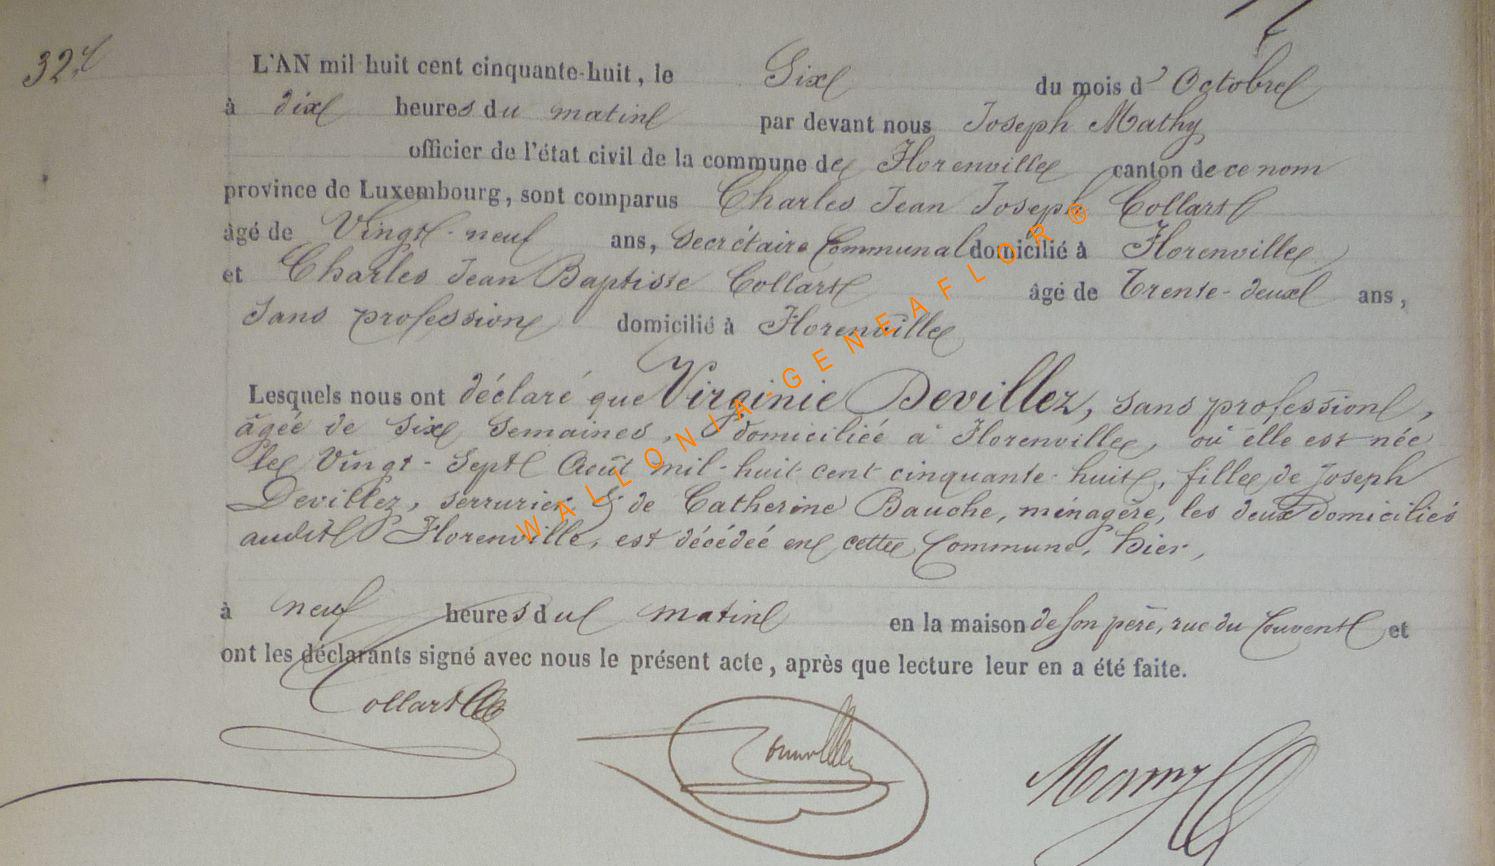 32
L'AN mil huit cent cinquante-huit, le Six du mois d'Octobre
à dix heures du matin par devant nous Joseph Mathy
officier de l'état civil de la commune de Florenville canton de ce nom
province de Luxembourg, sont comparus Charles Jean Joseph Collart
âgé de Vingt-neuf ans, Secrétaire Communal domicilié à Florenville
et Charles Jean Baptiste Collart âgé de Trente-deux ans,
Sans profession domicilié à Florenville
Lesquels nous ont déclaré que Virginie Devillez, sans profession,
âgée de Six Semaines, domiciliée à Florenville, où elle est née
le Vingt-Sept Août mil-huit cent cinquante-huit, fille de Joseph
Devillez, serrurier & de Catherine Bauche, ménagère, les deux domiciliés
audit Florenville, est décédée en cette Commune, hier,
à neuf heures du matin en la maison de son père, rue du Couvent et
ont les déclarants signé avec nous le présent acte, après que lecture leur en a été faite.
Collart
WALLONIA-GENEAFLOR®